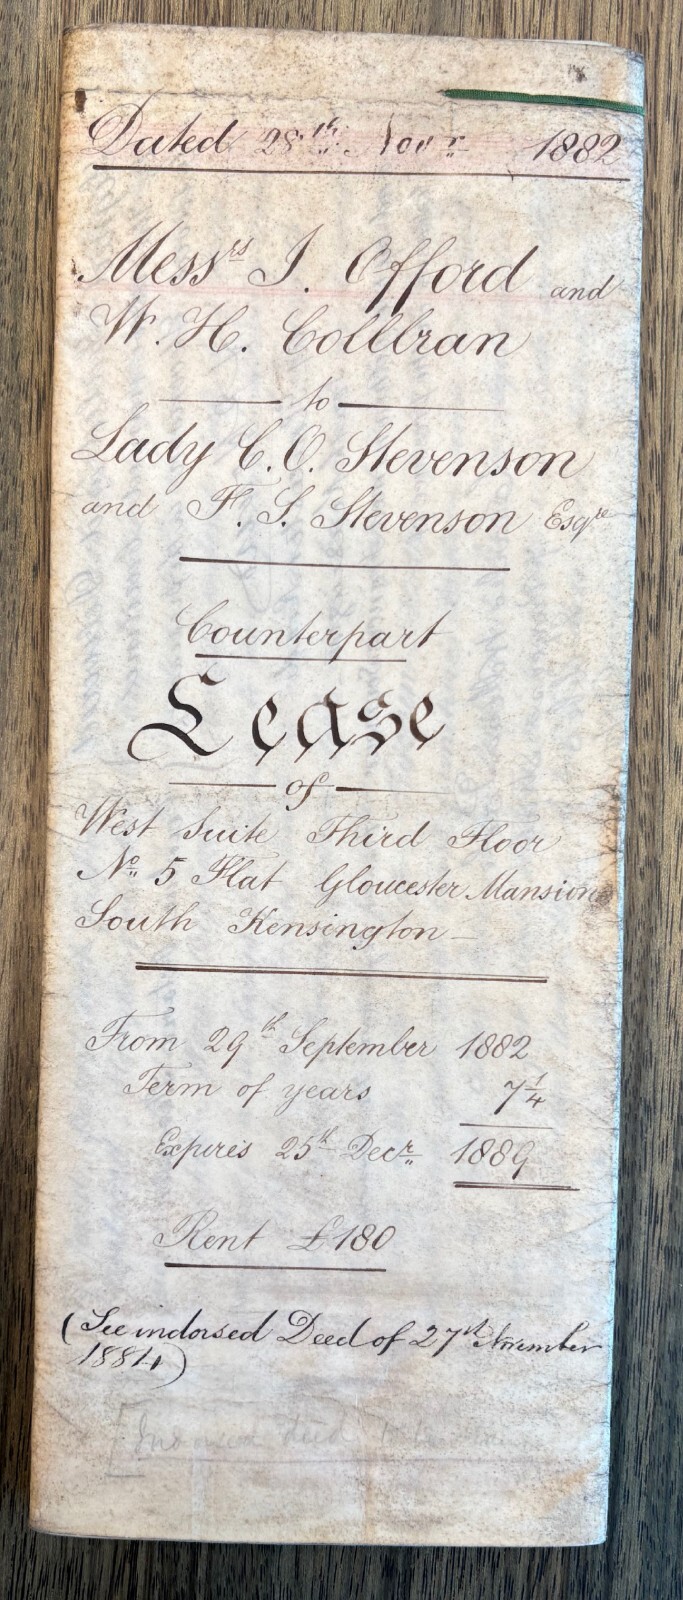 Dated 28th Novr 1882
Messrs I. Offord and
W. H. Collbran
to
Lady C. O. Stevenson
and F. S. Stevenson Esqre
Counterpart
Lease
of
West Suite Third Floor
No. 5 Flat Gloucester Mansions
South Kensington
From 29th September 1882
Term of years 7 1/4
Expires 25th Decr 1889
Rent £180
(See indorsed Deed of 27th November
1884)
deed